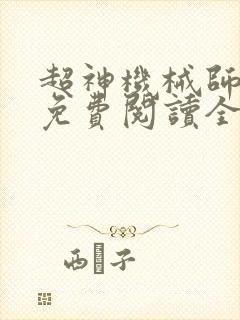 超神機械師
免費閱讀全
西 子